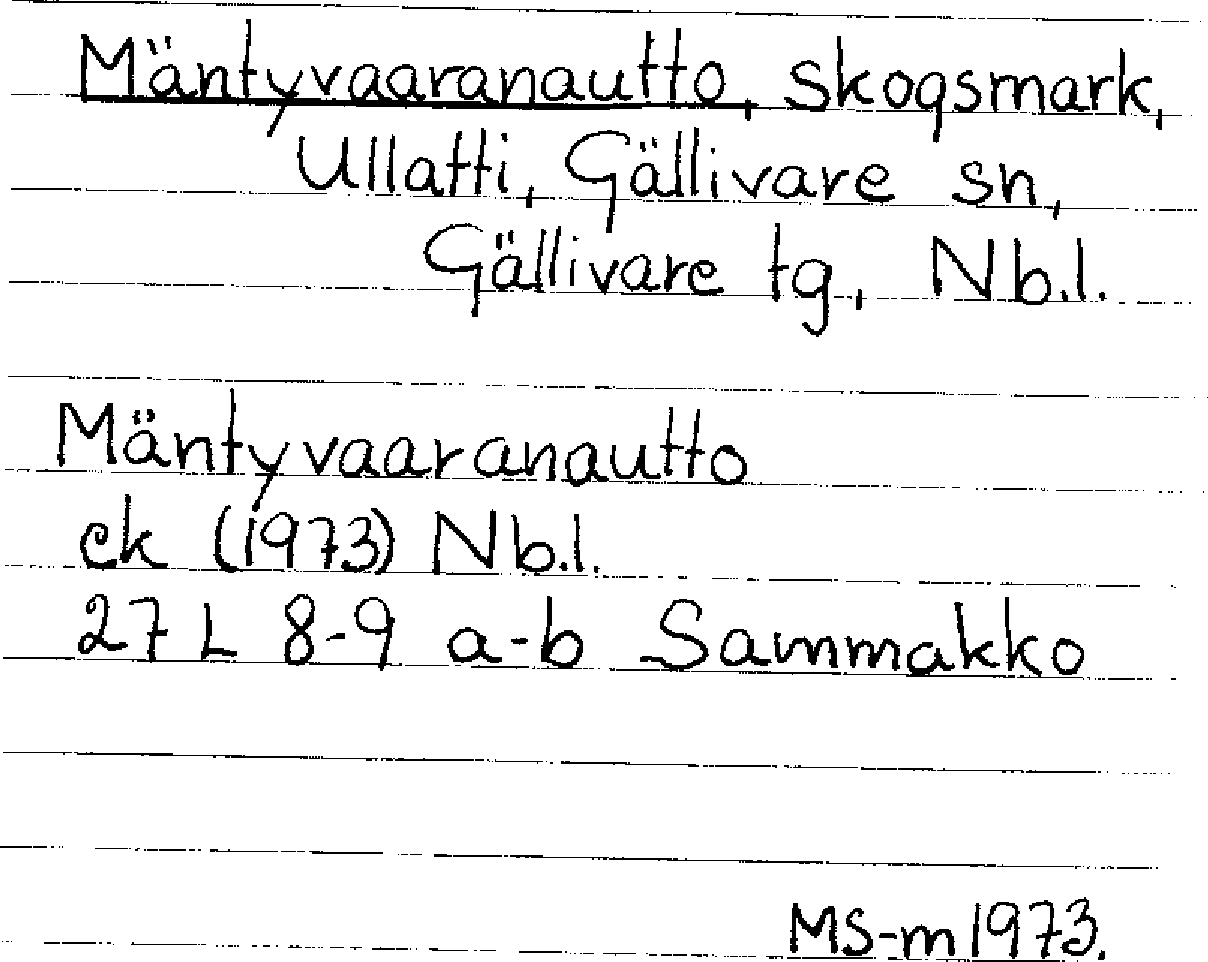 Mäntyvaaranautto, skogsmark,
Ullatti, Gällivare sn,
Gällivare tg, Nb.l.
Mäntyvaaranautto
ek (1973) Nb.l.
27 L 8-9 a-b Sammakko
MS-m 1973.